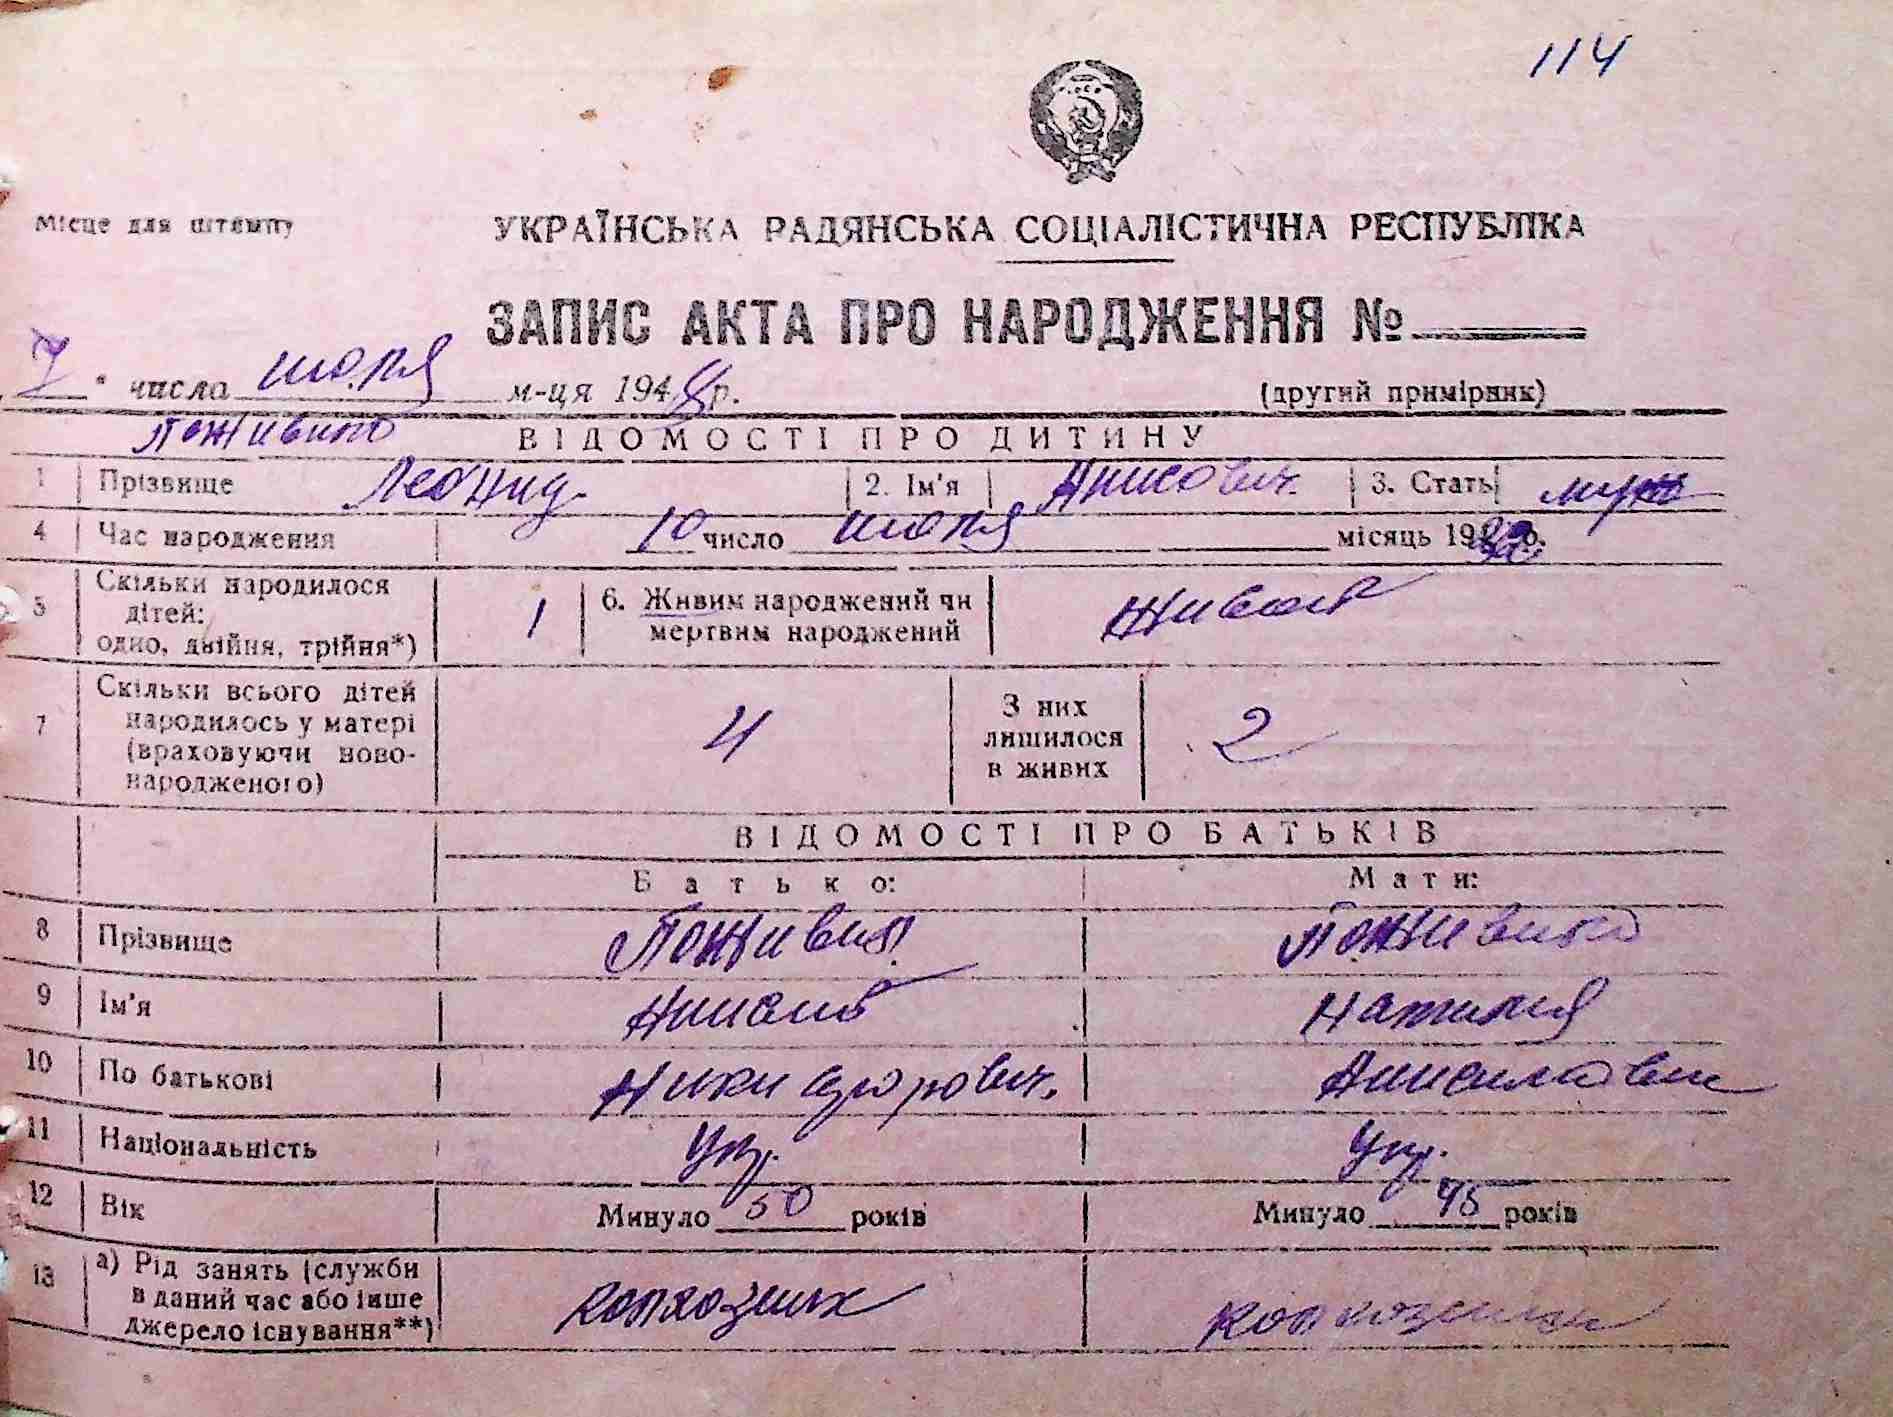 114
Місце для штампу
УКРАЇНСЬКА РАДЯНСЬКА СОЦІАЛІСТИЧНА РЕСПУБЛІКА
ЗАПИС АКТА ПРО НАРОДЖЕННЯ №
7 числа июля м-ця 194 р.
(другий примірник)
ВІДОМОСТІ ПРО ДИТИНУ
1 Прізвище Леонид 2. Ім'я Анисович 3. Стать муж
4 Час народження 10 число июля місяць 19 р.
5 Скільки народилося
дітей:
одно, двійня, трійня*) 1
6. Живим народжений чи
мертвим народжений
7 Скільки всього дітей
народилось у матері
(враховуючи ново-
народженого) 4
З них
лишилося
в живих 2
ВІДОМОСТІ ПРО БАТЬКІВ
Батько: Мати:
8 Прізвище
9 Ім'я Наталия
10 По батькові Никифорович.
11 Національність Укр. Укр.
12 Вік Минуло 50 років Минуло 45 років
13 а) Рід занять (служби
в даний час або інше
джерело існування**) колхозник